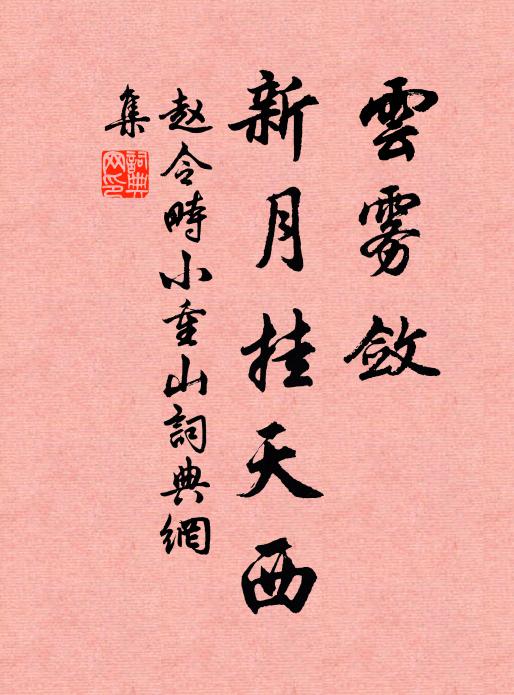 雲雾斂
新月挂天西
赵令畤小重山詞典網
集
詞典网印